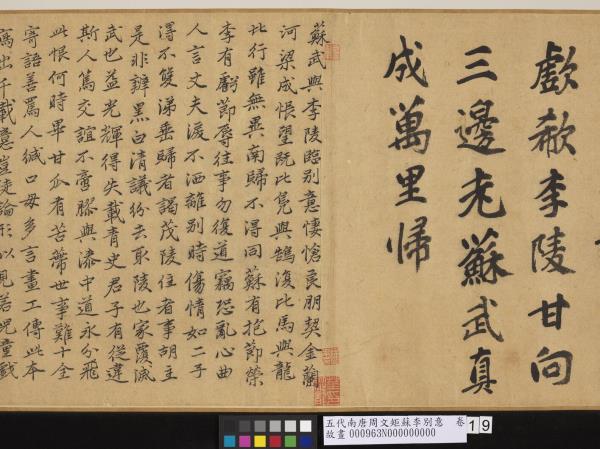 歔欷李陵甘向
三邊老蘇武真
成萬里歸
蘇武與李陵臨別意悽愴良朋契金蘭
河梁成悵望既比鳧與鵠復比馬與龍
北行雖無異南歸不得同蘇有抱節榮
李有虧節辱往事勿復道竊恐亂心曲
人言丈夫淚不洒離別時傷情如二子
得不雙涕垂歸者謁茂陵住者事胡主
是非辯黑白清議紛去取陵也家覆滅
武也益光輝得失載青史君子有從違
斯人篤交誼不啻膠與漆中道永分飛
此恨何時畢甘瓜有苦蒂世事難十全
寄語善罵人緘口毋多言畫工傳此本
寫出千載意豈徒論形似見若兒童戲
五代南唐周文矩蘇李別意 卷
故畫 000963N000000000
19